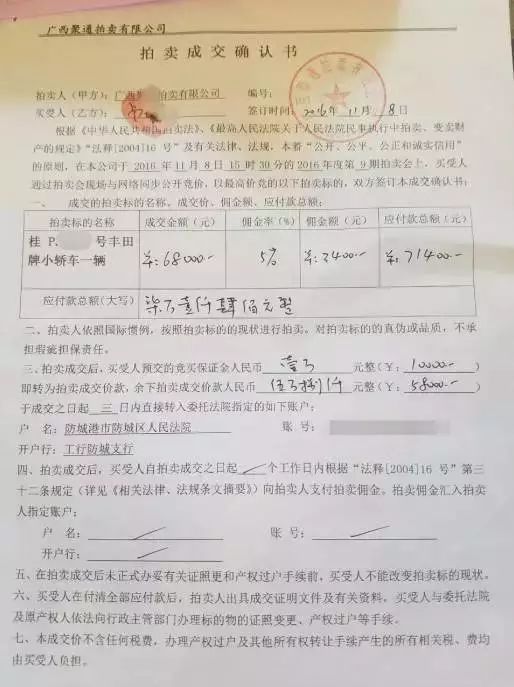 广西聚通拍卖有限公司
拍卖成交确认书
拍卖人（甲方）：广西 拍卖有限公司 编号：
买受人（乙方）： 签订时间：2016年11月8日
根据《中华人民共和国拍卖法》、《最高人民法院关于人民法院民事执行中拍卖、变卖财
产的规定》“法释[2004]16 号”及有关法律、法规，本着“公开、公平、公正和诚实信用”
的原则，在本公司于 2016 年 11 月 8 日 15 时 30 分的 2016 年度第 9 期拍卖会上，买受人
通过拍卖会现场与网络同步公开竞价，以最高价竞的以下拍卖标的，双方签订本成交确认书：
一、 成交的拍卖标的名称、成交价、佣金额、应付款总额：
拍卖标的名称 成交金额（元） 佣金率（%） 佣金额（元） 应付款总额（元）
桂 P. 号丰田牌小轿车一辆 ¥:68000.- 5% ¥:3400.- ¥:71400.-
应付款总额(大写) 柒万壹仟肆佰元整
二、拍卖人依照国际惯例，按照拍卖标的的现状进行拍卖，对拍卖标的的真伪或品质，不承
担瑕疵担保责任。
三、拍卖成交后，买受人预交的竞买保证金人民币 壹万 元整（¥：10000.-）
即转为拍卖成交价款，余下拍卖成交价款人民币 伍万捌仟 元整（¥：58000.-）
于成交之日起 三 日内直接转入委托法院指定的如下账户：
户 名：防城港市防城区人民法院 账 号：
开户行：工行防城支行
四、拍卖成交后，买受人自拍卖成交之日起 个工作日内根据“法释[2004]16 号”第三
十二条规定（详见《相关法律、法规条文摘要》）向拍卖人支付拍卖佣金。拍卖佣金汇入拍卖
人指定账户：
户 名： 账 号：
开户行：
五、在拍卖成交后未正式办妥有关证照更和产权过户手续前，买受人不能改变拍卖标的现状。
六、买受人在付清全部应付款后，拍卖人出具成交证明文件及有关资料，买受人与委托法院
及原产权人依法向行政主管部门办理标的物的证照变更、产权过户等手续。
七、本成交价不含任何税费，办理产权过户及其他所有权转让手续产生的所有相关税、费均
由买受人负担。